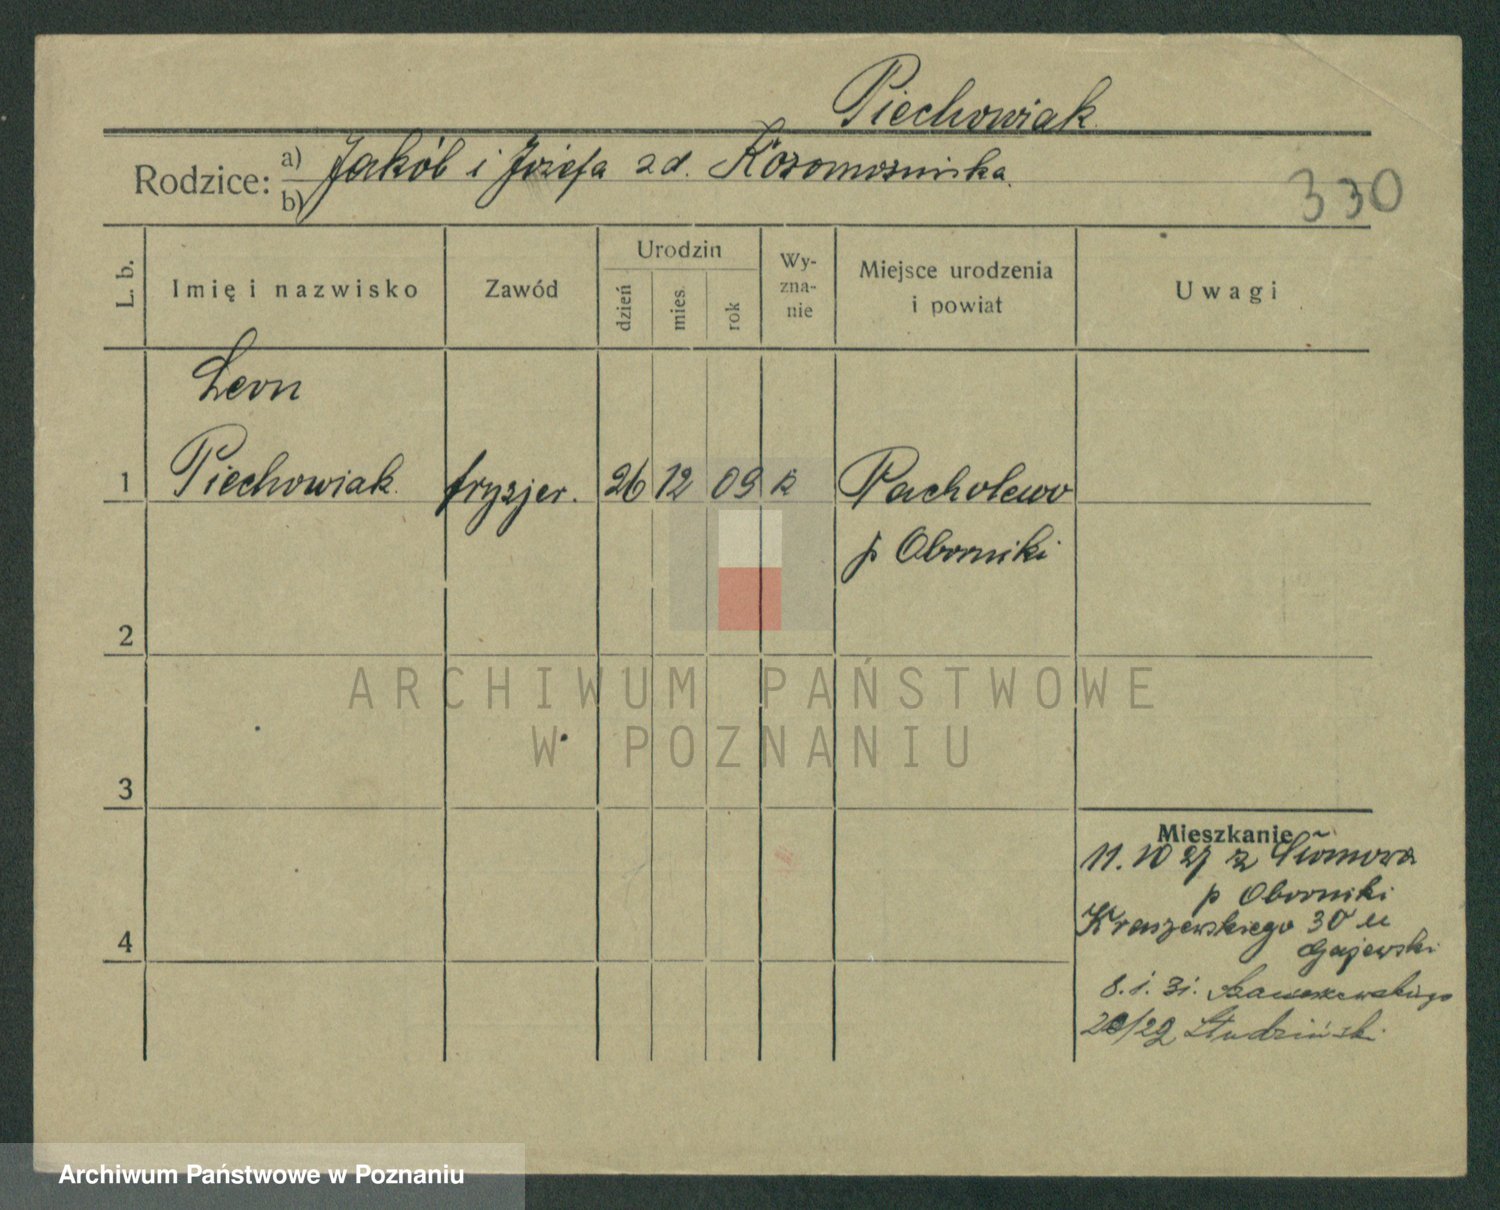 Piechowiak
Rodzice: a) Jakób i Józefa zd.
b)
330
L. b.
Imię i nazwisko
Zawód
Urodzin
dzień
mies.
rok
Wy-
zna-
nie
Miejsce urodzenia
i powiat
Uwagi
Leon
1 Piechowiak fryzjer. 26 12 09 k Pacholewo
p Oborniki
2
ARCHIWUM PAŃSTWOWE
W POZNANIU
3
Mieszkanie
11. 10 27 z
p Oborniki
Kraszewskiego 30 u
Gajewski
4
8. 1. 31.
Studziński
Archiwum Państwowe w Poznaniu